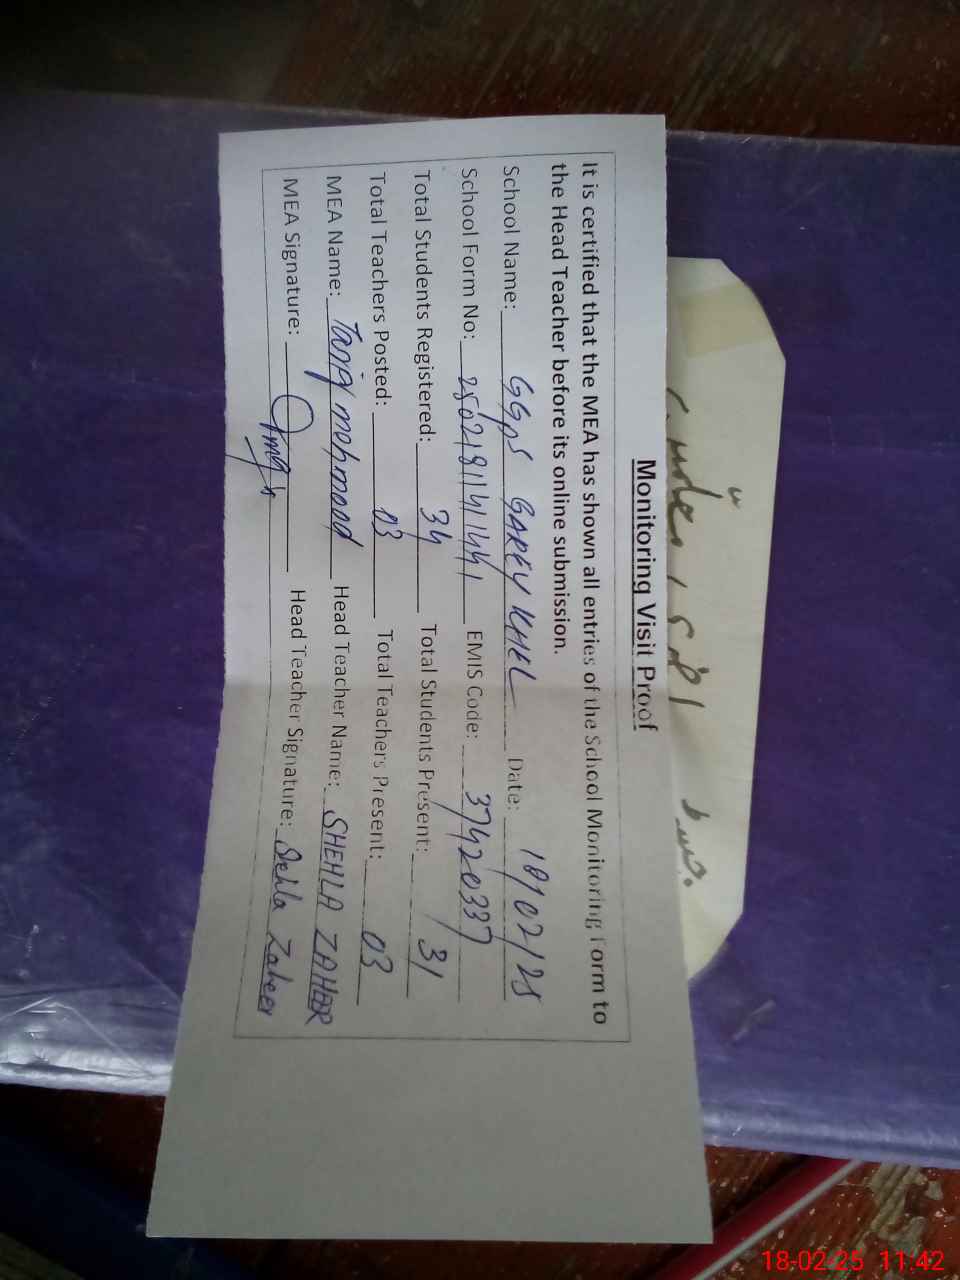 Monitoring Visit Proof
It is certified that the MEA has shown all entries of the School Monitoring Form to
the Head Teacher before its online submission.
School Name: GGPS GAREY KHEL Date: 18/02/25
School Form No: EMIS Code: 37420337
Total Students Registered: 34 Total Students Present: 31
Total Teachers Posted: 03 Total Teachers Present: 03
MEA Name: Tariq mehmood Head Teacher Name: SHEHLA ZAHEER
MEA Signature: Head Teacher Signature: Sehla Zaheer
18-02-25 11:42